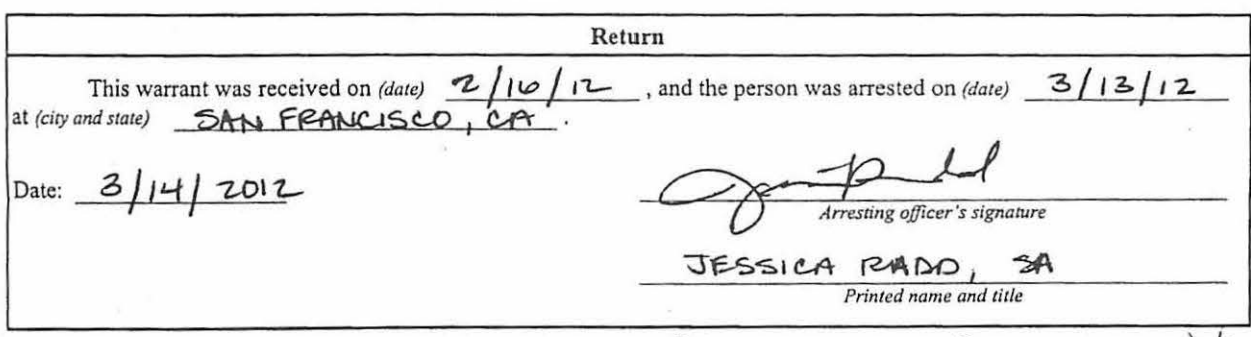 Return
This warrant was received on (date) 2/16/12 , and the person was arrested on (date) 3/13/12
at (city and state) SAN FRANCISCO, CA .
Date: 3/14/2012
Arresting officer's signature
JESSICA RADD, SA
Printed name and title